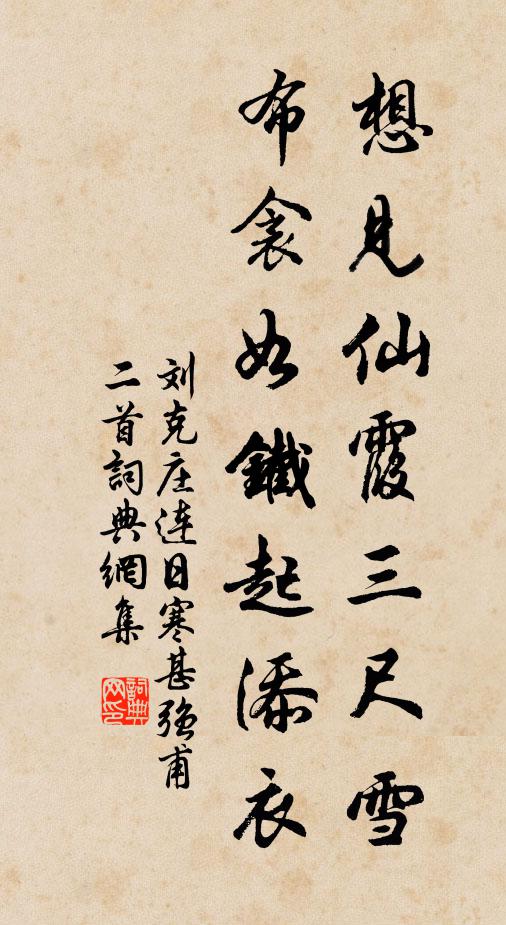 想見仙霞三尺雪
布衾如鐵起添衣
刘克庄連日寒甚强甫
二首詞典網集
詞典网印